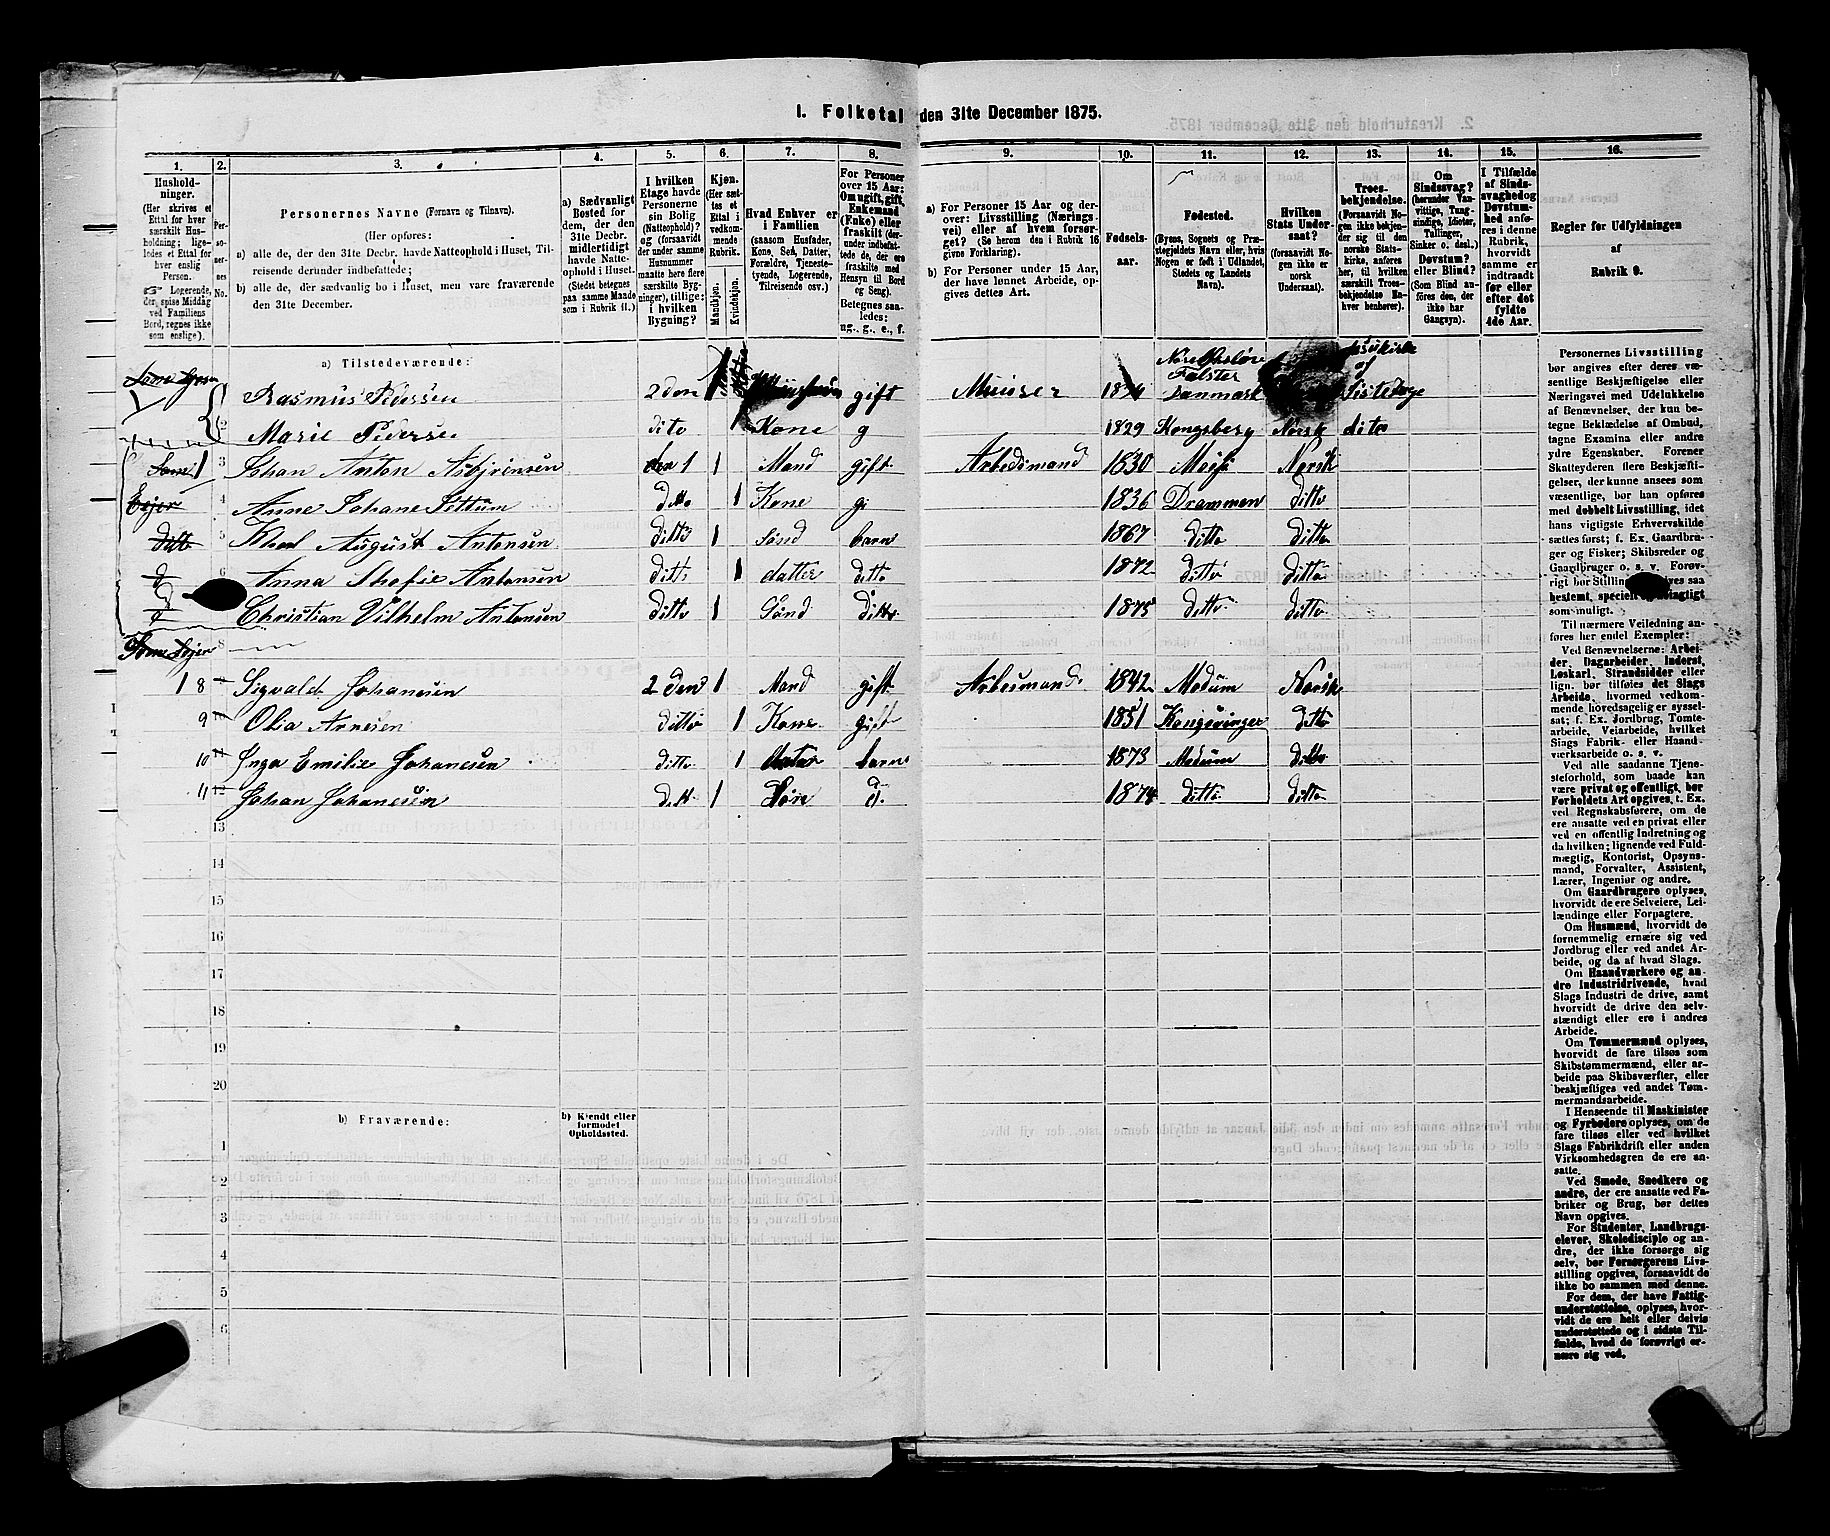 1. Folketal den 31te December 1875.
1. 2. 3. 4. 5. 6. 7. 8. 9. 10. 11. 12. 13. 14. 15. 16.
Husholdninger.
(Her skrives et Ettal for hver særskilt Husholdning; ligeledes et Ettal for hver enslig Person.
☞ Logerende, der spise Middag ved Familiens Bord, regnes ikke som enslige).
Personernes No.
Personernes Navne (Fornavn og Tilnavn).
(Her opføres:
a) alle de, der den 31te Decbr. havde Natteophold i Huset, Tilreisende derunder indbefattede;
b) alle de, der sædvanlig bo i Huset, men vare fraværende den 31te December.
a) Sædvanligt Bosted for dem, der den 31te Decbr. midlertidigt havde Natteophold i Huset. (Stedet betegnes paa samme Maade som i Rubrik 11.)
I hvilken Etage havde Personerne sin Bolig (Natteophold)? og (forsaavidt der under samme Husnummer maatte høre flere særskilte Bygninger), tillige: i hvilken Bygning?
Kjøn.
(Her sættes et Ettal i vedkommende Rubrik.
Mandkjøn.
Kvindekjøn.
Hvad Enhver er i Familien
(saasom Husfader, Kone, Søn, Datter, Forældre, Tjenestetyende, Logerende, Tilreisende osv.)
For Personer over 15 Aar: Om ugift, gift, Enkemand (Enke) eller fraskilt (derunder indbefattede de, der ere fraskilte med Hensyn til Bord og Seng).
Betegnes saaledes:
ug., g., e., f.
a) For Personer 15 Aar og derover: Livsstilling (Næringsvei) eller af hvem forsørget? (Se herom den i Rubrik 16 givne Forklaring).
b) For Personer under 15 Aar, der have lønnet Arbeide, opgives dettes Art.
Fødselsaar.
Fødested.
(Byens, Sognets og Præstegjeldets Navn eller, hvis Nogen er født i Udlandet, Stedets og Landets Navn).
Hvilken Stats Undersaat?
(forsaavidt Nogen ikke er norsk Undersaat).
Troesbekjendelse.
(Forsaavidt Nogen ikke bekjender sig til den norske Statskirke, anføres her, til hvilken særskilt Troesbekjendelse Enhver henhører).
Om Sindssvag? (herunder Vanvittige, Tungsindige, Idioter, Tullinger, Sinker o. desl.) Døvstum? eller Blind? (Som Blind anføres den, der ikke har Gangsyn).
I Tilfælde af Sindssvaghed og Døvstumhed anføres i denne Rubrik, hvorvidt samme er indtraadt før eller efter det fyldte 4de Aar.
Regler for Udfyldningen
af
Rubrik 9.
a) Tilstedeværende:
Falster
Rasmus Pedersen 2den 1 gift 1834 Danmark
2 Marie Pedersen dito 1 Kone g 1829 Kongsberg Norsk dito
1 3 Johan Anton Asbjørnsen 1 1 Mand gift Arbeidsmand 1830 Norsk
Eier 4 Anne Johane Ditto 1 Kone g 1836 Drammen ditto
ditto 5 August Antonsen ditto 1 Sønd barn 1867 ditto ditto
6 Anna Shofie Antonsen ditto 1 datter ditto 1872 ditto ditto
Christian Vilhelm Antonsen ditto 1 Sønd ditto 1875 ditto ditto
8
1 8 Sigvald Johansen 2den 1 Mand gift Arbesmand 1842 Modum Norsk
9 Olia Arnesen ditto 1 Kone gift 1851 Kongsvinger ditto
10 Inga Emilie Johanesen ditto 1 Datter barn 1873 Modum ditto
11 Johan Johanesen ditt 1 Søn d. 1874 ditto ditto
13
14
15
16
17
18
19
20
b) Fraværende: b) Kjendt eller formodet Opholdssted.
1
2
3
4
5
6
Personernes Livsstilling
bør angives efter deres væ-
sentlige Beskjæftigelse eller
Næringsvei med Udelukkelse
af Benævnelser, der kun be-
tegne Beklædelse af Ombud,
tagne Examina eller andre
ydre Egenskaber. Forener
Skatteyderen flere Beskjæfti-
gelser, der kunne ansees som
væsentlige, bør han opføres
med dobbelt Livsstilling, idet
hans vigtigste Erhvervskilde
sættes først; f. Ex. Gaardbru-
ger og Fisker; Skibsreder og
Gaardbruger o. s. v. Forøv-
rigt bør Stillingen opgives saa
bestemt, specielt og nøiagtigt
som muligt.
Til nærmere Veiledning an-
føres her endel Exempler:
Ved Benævnelserne: Arbei-
der, Dagarbeider, Inderst,
Løskarl, Strandsidder eller
lign. bør tilføies det Slags
Arbeide, hvormed vedkom-
mende hovedsagelig er syssel-
sat; f. Ex. Jordbrug, Tomte-
arbeide, Veiarbeide, hvilket
Slags Fabrik- eller Haand-
værksarbeide o. s. v.
Ved alle saadanne Tjene-
steforhold, som baade kan
være privat og offentligt, bør
Forholdets Art opgives, t. Ex.
ved Regnskabsførere, om de
ere ansatte ved en privat eller
ved en offentlig Indretning og
da hvilken; lignende ved Fuld-
mægtig, Kontorist, Opsyns-
mand, Forvalter, Assistent,
Lærer, Ingeniør og andre.
Om Gaardbrugere oplyses,
hvorvidt de ere Selveiere, Lei-
lændinge eller Forpagtere.
Om Husmænd, hvorvidt de
fornemmelig ernære sig ved
Jordbrug eller ved andet Ar-
beide, og da af hvad Slags.
Om Haandværkere og an-
dre Industridrivende, hvad
Slags Industri de drive, samt
hvorvidt de drive den selv-
stændigt eller ere i andres
Arbeide.
Om Tømmermænd oplyses,
hvorvidt de fare tilsøs som
Skibstømmermænd, eller ar-
beide paa Skibsværfter, eller
beskjæftiges ved andet Tøm-
mermandsarbeide.
I Henseende til Maskinister
og Fyrbødere oplyses, om de
fare tilsøs eller ved hvilket
Slags Fabrikdrift eller anden
Virksomhedsgren de ere an-
satte.
Ved Smede, Snedkere og
andre, der ere ansatte ved Fa-
briker og Brug, bør dettes
Navn opgives.
For Studenter, Landbrugs-
elever, Skoledisciple og an-
dre, der ikke forsørge sig
selv, bør Forsørgerens Livs-
stilling opgives, forsaavidt de
ikke bo sammen med denne.
For dem, der have Fattig-
understøttelse, oplyses, hvor-
vidt de ere helt eller delvis
understøttede og i sidste Til-
fælde, hvad de forøvrigt er-
nære sig ved.